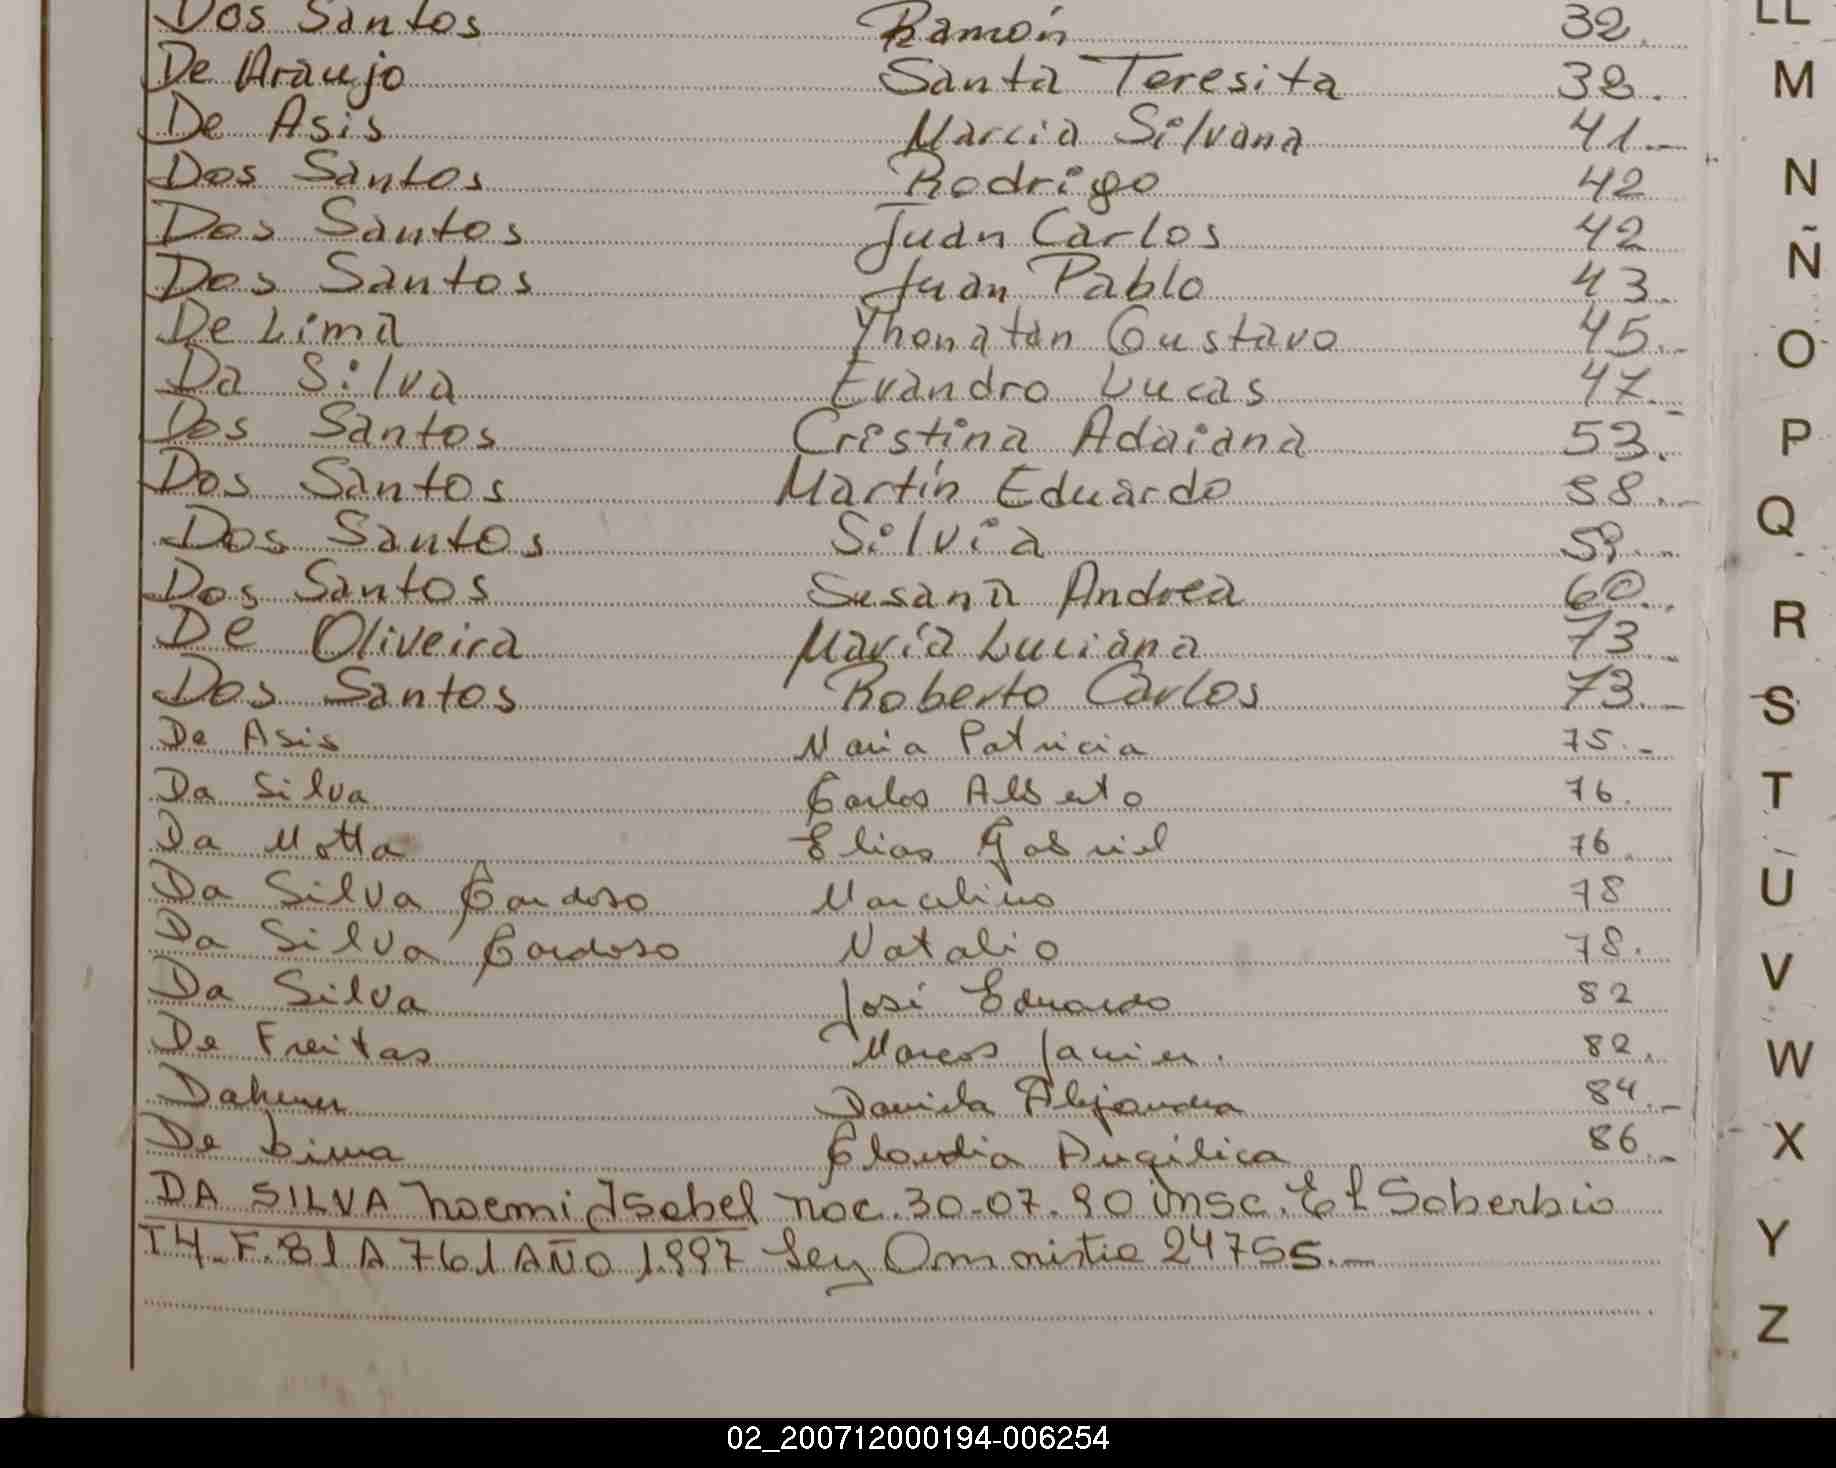 Dos Santos Ramón 32.
De Araujo Santa Teresita 38.
De Asis Marcia Silvana 41.-
Dos Santos Rodrigo 42
Dos Santos Juan Carlos 42
Dos Santos Juan Pablo 43.
De Lima Yhonatan Gustavo 45.-
Da Silva Evandro Lucas 47.-
Dos Santos Cristina Adaiana 53.
Dos Santos Martín Eduardo 58.-
Dos Santos Silvia 59.-
Dos Santos Susana Andrea 60.
De Oliveira María Luciana 73
Dos Santos Roberto Carlos 73.-
De Asis Maria Patricia 75.-
Da Silva Carlos Alberto 76.
Da Motta Elias Gabriel 76.
Da Silva Cardoso Marcelino 78
Da Silva Cardoso Natalio 78.
Da Silva José Eduardo 82
De Freitas Marcos Javier. 82.
Dahmer Daniela Alejandra 84.-
De Lima Claudia Angélica 86.-
DA SILVA Noemi Isabel nac. 30-07.90 insc. El Soberbio
T4. F. 81 A 761 AÑO 1.997 Ley Amnistia 24755.-
LL
M
N
Ñ
O
P
Q
R
S
T
U
V
W
X
Y
Z
02_200712000194-006254